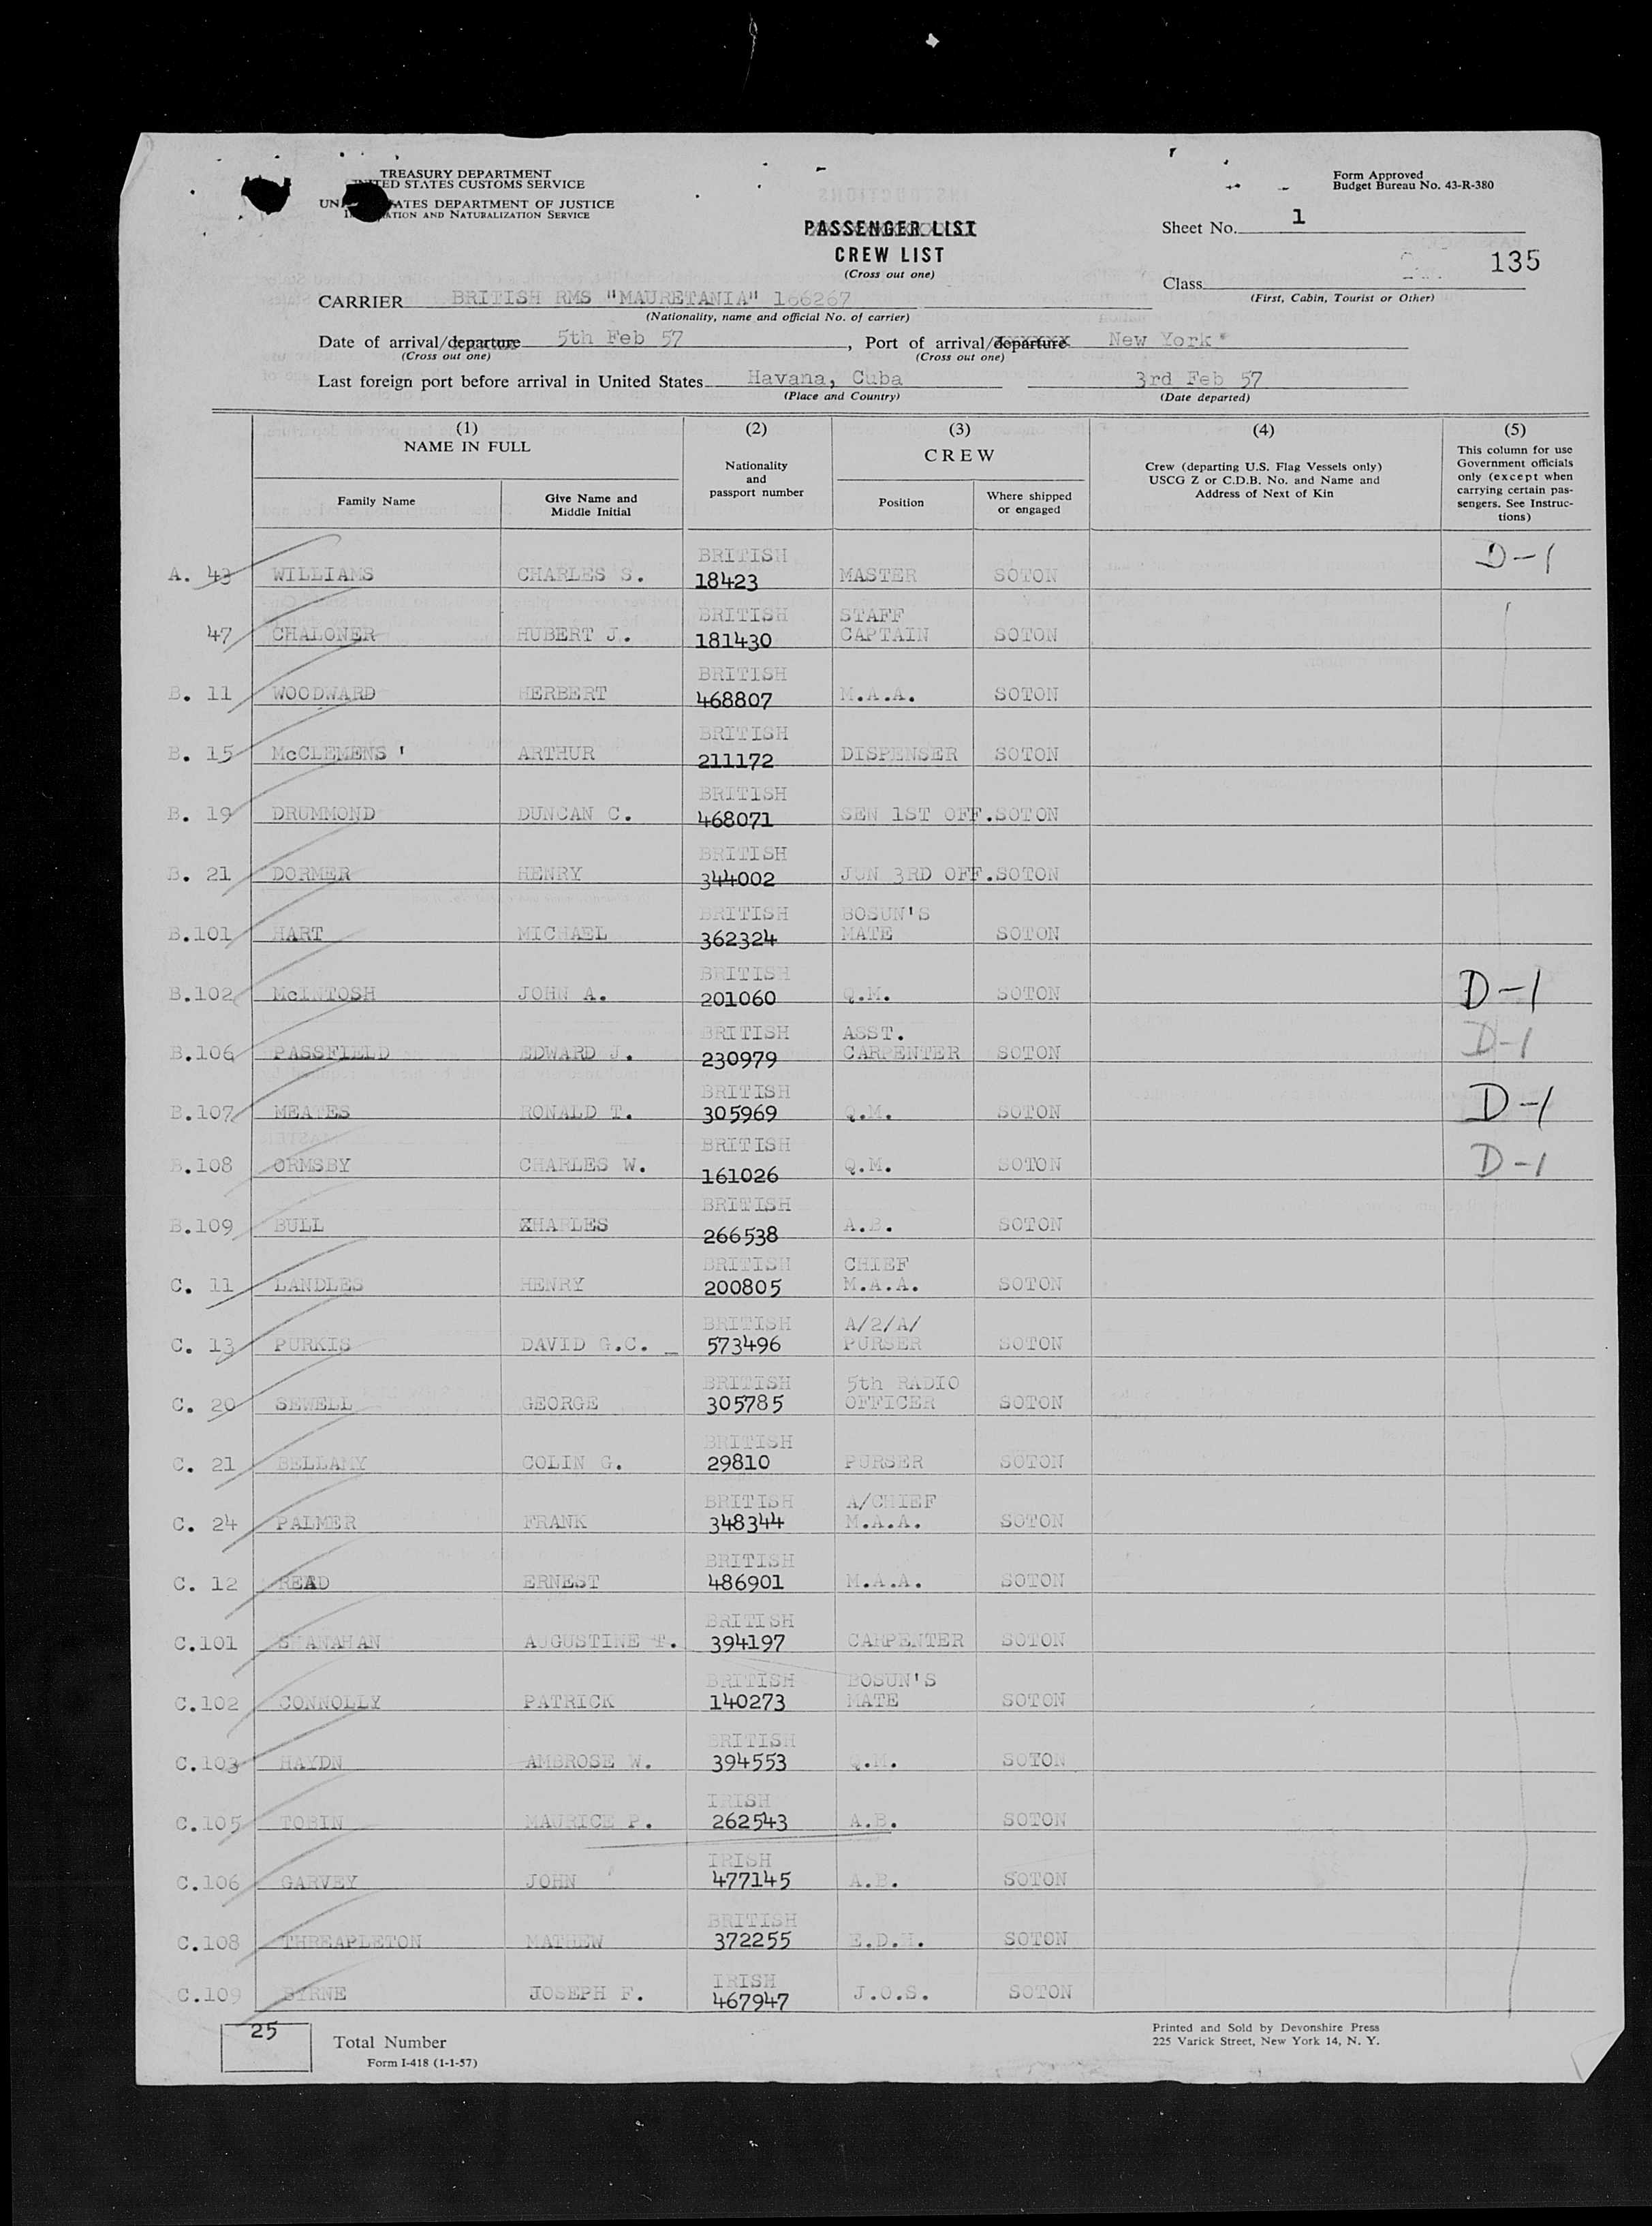 TREASURY DEPARTMENT
UNITED STATES CUSTOMS SERVICE
STATES DEPARTMENT OF JUSTICE
AND NATURALIZATION SERVICE
Form Approved
Budget Bureau No. 43-R-380
PASSENGER LIST
CREW LIST
(Cross out one)
Sheet No. 1
135
Class
(First, Cabin, Tourist or Other)
CARRIER BRITISH RMS "MAURETANIA" 166267
(Nationality, name and official No. of carrier)
Date of arrival/departure 5th Feb 57, Port of arrival/departure New York
(Cross out one) (Cross out one)
Last foreign port before arrival in United States Havana, Cuba 3rd Feb 57
(Place and Country) (Date departed)
(1) NAME IN FULL
Family Name
Give Name and Middle Initial
(2)
Nationality and passport number
(3) CREW
Position
Where shipped or engaged
(4)
Crew (departing U.S. Flag Vessels only)
USCG Z or C.D.B. No. and Name and
Address of Next of Kin
(5)
This column for use
Government officials
only (except when
carrying certain pas-
sengers. See Instruc-
tions)
A. 43 WILLIAMS CHARLES S. BRITISH 18423 MASTER SOTON D-1
47 CHALONER HUBERT J. BRITISH 181430 STAFF CAPTAIN SOTON
B. 11 WOODWARD HERBERT BRITISH 468807 M.A.A. SOTON
B. 15 McCLEMENS ' ARTHUR BRITISH 211172 DISPENSER SOTON
B. 19 DRUMMOND DUNCAN C. BRITISH 468071 SEN 1ST OFF. SOTON
B. 21 DORMER HENRY BRITISH 344002 JUN 3RD OFF. SOTON
B.101 HART MICHAEL BRITISH 362324 BOSUN'S MATE SOTON
B.102 McINTOSH JOHN A. BRITISH 201060 Q.M. SOTON D-1
B.106 PASSFIELD EDWARD J. BRITISH 230979 ASST. CARPENTER SOTON D-1
B.107 MEATES RONALD T. BRITISH 305969 Q.M. SOTON D-1
B.108 ORMSBY CHARLES W. BRITISH 161026 Q.M. SOTON D-1
B.109 BULL XHARLES BRITISH 266538 A.B. SOTON
C. 11 LANDLES HENRY BRITISH 200805 CHIEF M.A.A. SOTON
C. 13 PURKIS DAVID G.C. _ BRITISH 573496 A/2/A/ PURSER SOTON
C. 20 SEWELL GEORGE BRITISH 305785 5th RADIO OFFICER SOTON
C. 21 BELLAMY COLIN G. BRITISH 29810 PURSER SOTON
C. 24 PALMER FRANK BRITISH 348344 A/CHIEF M.A.A. SOTON
C. 12 READ ERNEST BRITISH 486901 M.A.A. SOTON
C.101 SHANAHAN AUGUSTINE T. BRITISH 394197 CARPENTER SOTON
C.102 CONNOLLY PATRICK BRITISH 140273 BOSUN'S MATE SOTON
C.103 HAYDN AMBROSE W. BRITISH 394553 Q.M. SOTON
C.105 TOBIN MAURICE P. IRISH 262543 A.B. SOTON
C.106 GARVEY JOHN IRISH 477145 A.B. SOTON
C.108 THREAPLETON MATHEW BRITISH 372255 E.D.H. SOTON
C.109 BYRNE JOSEPH F. IRISH 467947 J.O.S. SOTON
25 Total Number
Form I-418 (1-1-57)
Printed and Sold by Devonshire Press
225 Varick Street, New York 14, N. Y.